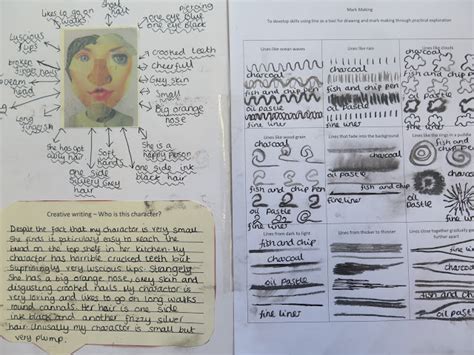 likes to go on
walks
short
hair
piercing
one eye blue
one eye black
Luscious
lips
crooked teeth
cheerful
broken
finger nails
Grey skin
Big orange
nose
Long
She has got
curly hair
Soft
hands
She is a
happy person
one side
silvery Grey
hair
one side ink
black hair
Creative writing ~ Who is this character?
Despite the fact that my character is very small
She finds it particularly easy to reach the
bread on the top shelf in her kitchen. My
character has horrible crucked teeth but
Suprisingly very luscious lips. Strangely
She has a big orange nose, Grey skin and
disgusting crocked nails. My character is
very loving and likes to go on long walks
round cannals. Her hair is one side
ink black and another frizzy silver
hair. Unusally my character is small but
very plump.
Mark Making
To develop skills using line as a tool for drawing and mark making through practical exploration
Lines like ocean waves
charcoal
fish and chip pen
oil pastle
fine liner
Lines like rain
charcoal
fish and chip
oil pastle
fine liner
Lines like clouds
charcoal
fish and chip
oil pastle
fine liner
Lines like wood grain
charcoal
fish and chip pen
oil pastle
fine liner
Lines that fade into the background
charcoal
oil pastle
fish and chip
fine liner
Lines like the rings in a puddle
charcoal
fish and chip
oil pastle
fine liner
Lines from dark to light
fish and chip
charcoal
oil pastle
fine liner
Lines from thicker to thinner
charcoal
oil pastle
fish and chip
fine liner
Lines close together gradually getting
further apart
charcoal
oil pastle
fish and chip
fine liner